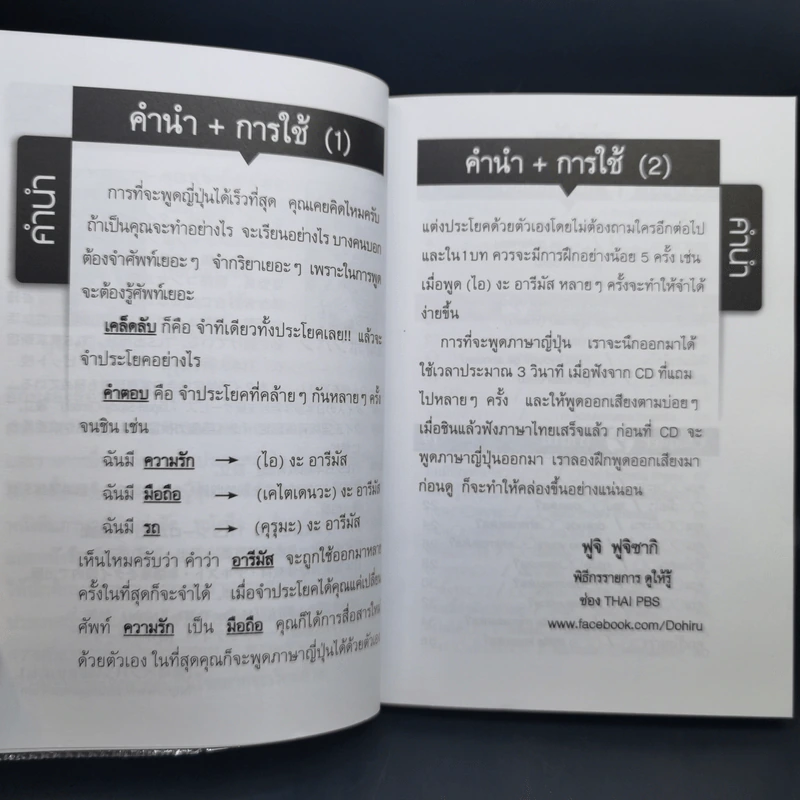 คำนำ + การใช้ (1)
คำนำ
การที่จะพูดญี่ปุ่นได้เร็วที่สุด คุณเคยคิดไหมครับ
ถ้าเป็นคุณจะทำอย่างไร จะเรียนอย่างไร บางคนบอก
ต้องจำศัพท์เยอะๆ จำกริยาเยอะๆ เพราะในการพูด
จะต้องรู้ศัพท์เยอะ
เคล็ดลับ ก็คือ จำทีเดียวทั้งประโยคเลย!! แล้วจะ
จำประโยคอย่างไร
คำตอบ คือ จำประโยคที่คล้ายๆ กันหลายๆ ครั้ง
จนชิน เช่น
ฉันมี ความรัก → (ไอ) งะ อารีมัส
ฉันมี มือถือ → (เคไตเดนวะ) งะ อารีมัส
ฉันมี รถ → (คุรุมะ) งะ อารีมัส
เห็นไหมครับว่า คำว่า อารีมัส จะถูกใช้ออกมาหลาย
ครั้งในที่สุดก็จะจำได้ เมื่อจำประโยคได้คุณแค่เปลี่ยน
ศัพท์ ความรัก เป็น มือถือ คุณก็ได้การสื่อสารใหม่
ด้วยตัวเอง ในที่สุดคุณก็จะพูดภาษาญี่ปุ่นได้ด้วยตัวเอง
คำนำ + การใช้ (2)
คำนำ
แต่งประโยคด้วยตัวเองโดยไม่ต้องถามใครอีกต่อไป
และใน1บท ควรจะมีการฝึกอย่างน้อย 5 ครั้ง เช่น
เมื่อพูด (ไอ) งะ อารีมัส หลายๆ ครั้งจะทำให้จำได้
ง่ายขึ้น
การที่จะพูดภาษาญี่ปุ่น เราจะนึกออกมาได้
ใช้เวลาประมาณ 3 วินาที เมื่อฟังจาก CD ที่แถม
ไปหลายๆ ครั้ง และให้พูดออกเสียงตามบ่อยๆ
เมื่อชินแล้วฟังภาษาไทยเสร็จแล้ว ก่อนที่ CD จะ
พูดภาษาญี่ปุ่นออกมา เราลองฝึกพูดออกเสียงมา
ก่อนดู ก็จะทำให้คล่องขึ้นอย่างแน่นอน
ฟูจิ ฟูจิซากิ
พิธีกรรายการ ดูให้รู้
ช่อง THAI PBS
www.facebook.com/Dohiru